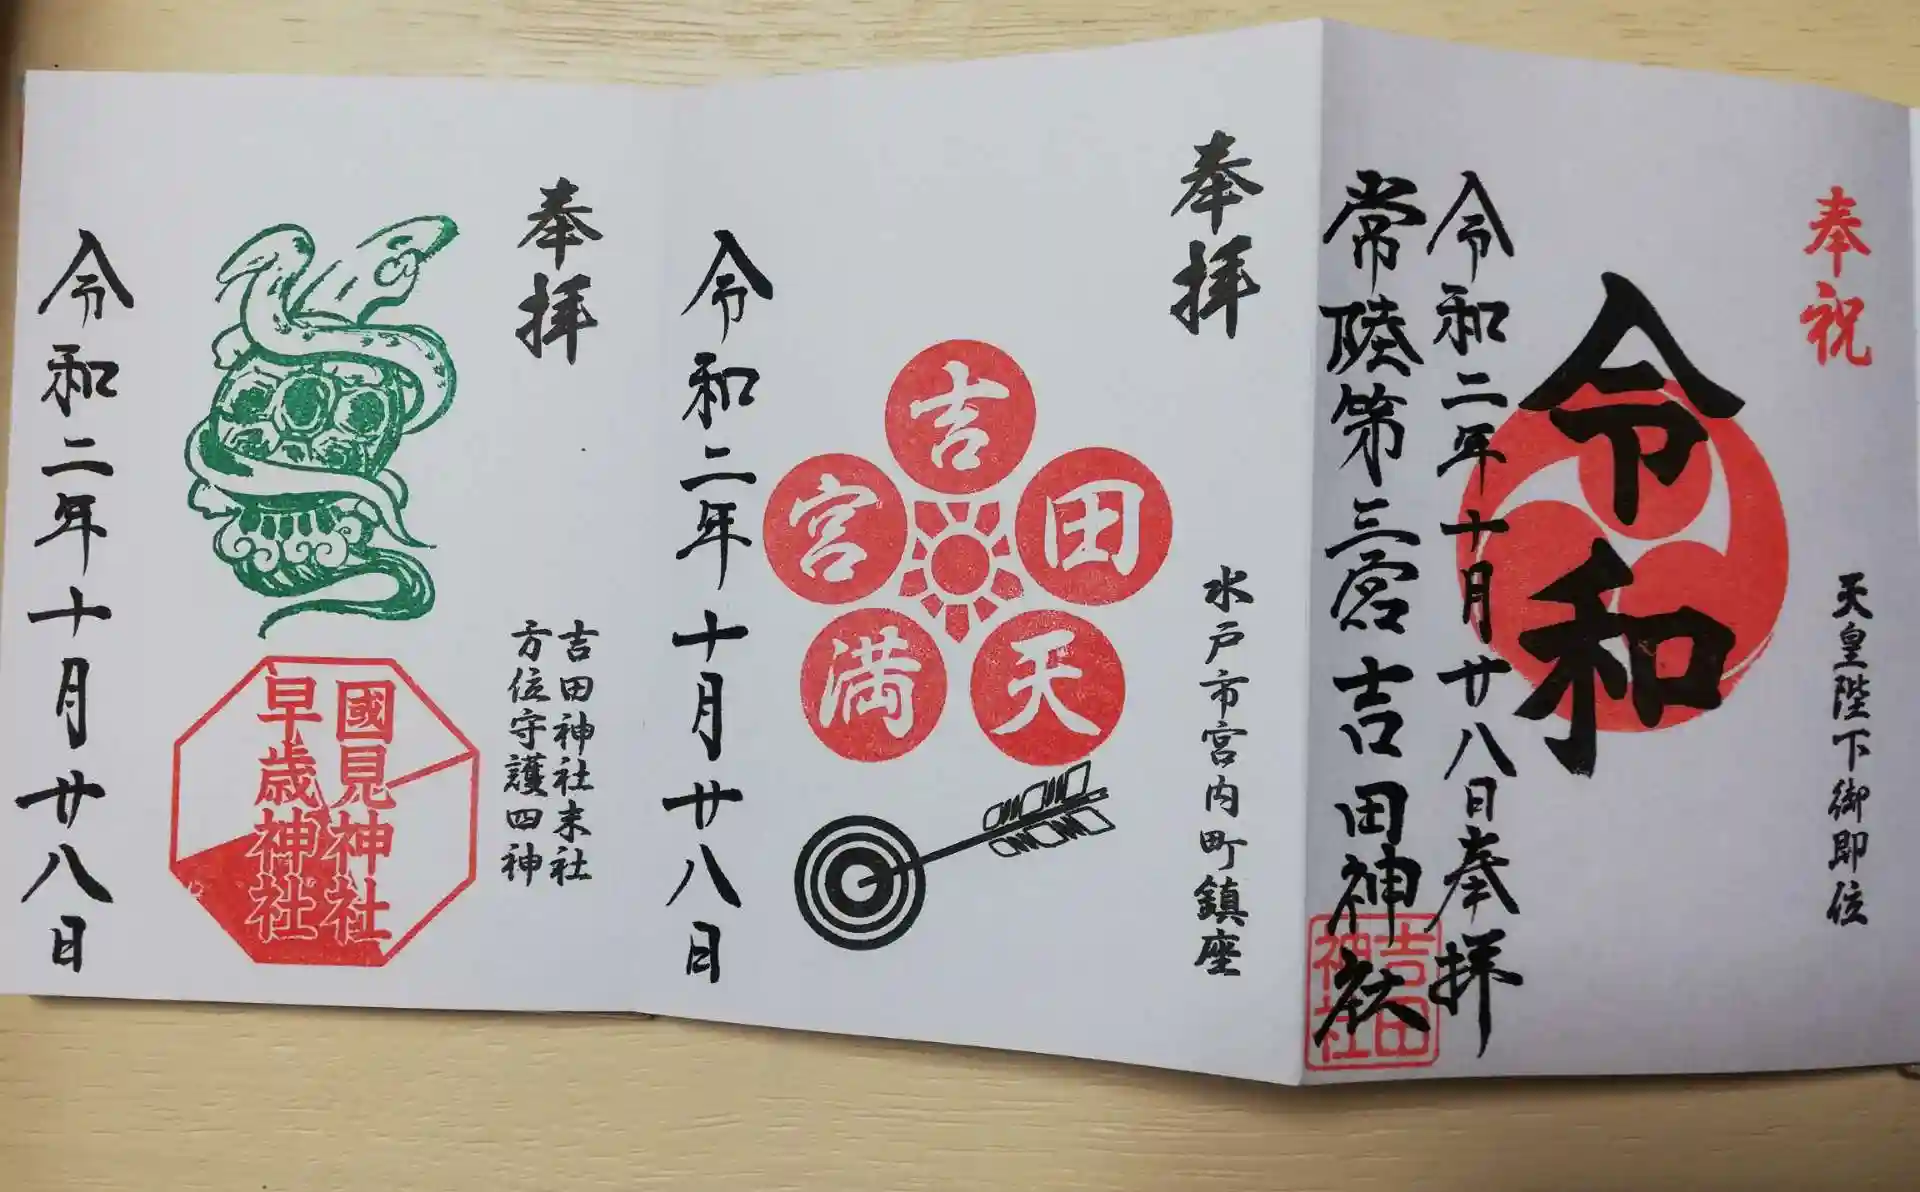 奉祝
天皇陛下御即位
令和
令和二年十月廿八日奉拝
常陸第三宮吉田神社
吉田
神社
奉拝
水戸市宮内町鎮座
吉
田
天
満
宮
令和二年十月廿八日
奉拝
吉田神社末社
方位守護四神
國見神社
早歳神社
令和二年十月廿八日